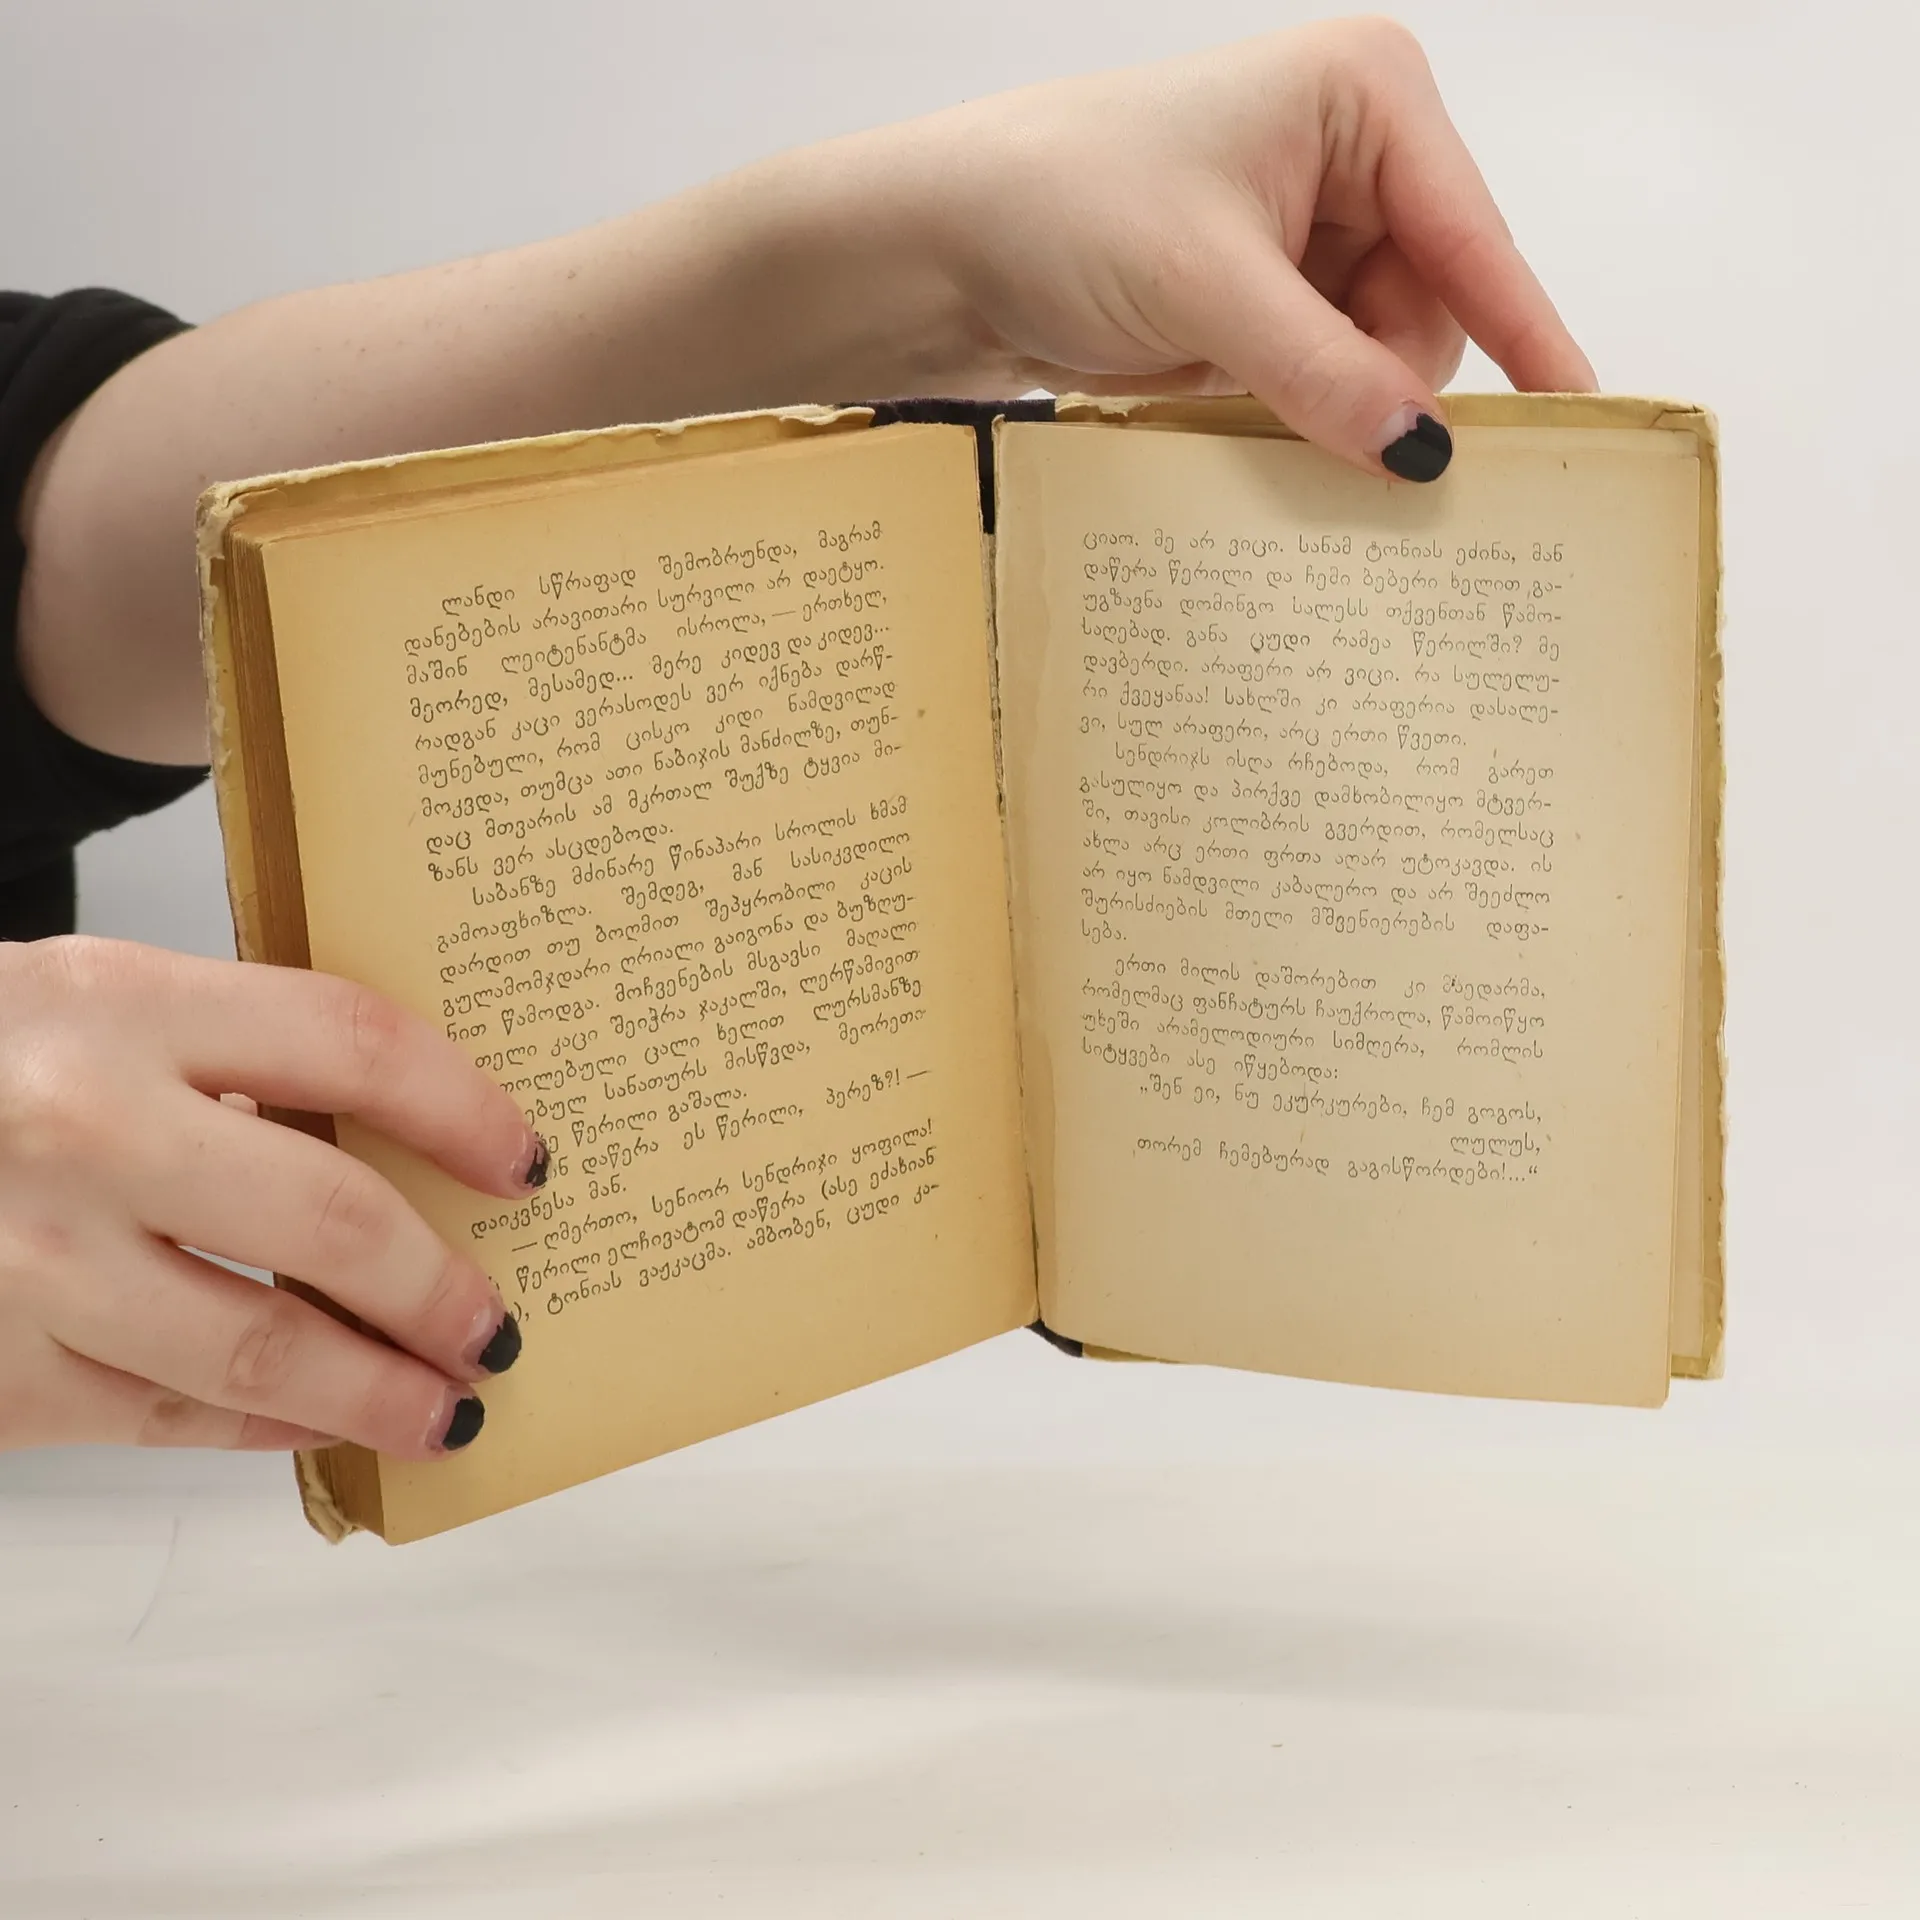 ლანდი სწრაფად შემობრუნდა, მაგრამ
დანებების არავითარი სურვილი არ დაეტყო.
მაშინ ლეიტენანტმა ისროლა, — ერთხელ,
მეორედ, მესამედ... მერე კიდევ და კიდევ...
რადგან კაცი ვერასოდეს ვერ იქნება დარწ-
მუნებული, რომ ცისკო კიდი ნამდვილად
მოკვდა, თუმცა ათი ნაბიჯის მანძილზე, თუნ-
დაც მთვარის ამ მკრთალ შუქზე ტყვია მი-
ზანს ვერ ასცდებოდა.
საბანზე მძინარე წინაპარი სროლის ხმამ
გამოაფხიზლა. შემდეგ, მან სასიკვდილო
დარდით თუ ბოღმით შეპყრობილი კაცის
გულამომჯდარი ღრიალი გაიგონა და ბუზღუ-
ნით წამოდგა. მოჩვენების მსგავსი მაღალი
თელი კაცი შეიჭრა ჯაკალში, ლერწამივით
ოლებული ცალი ხელით ლურსმანზე
ებულ სანათურს მისწვდა, მეორეთი
წერილი გაშალა.
დაწერა ეს წერილი, პერეზ?! —
დაიკვნესა მან.
— ღმერთო, სენიორ სენდრიჯი ყოფილა!
წერილი ელჩივატომ დაწერა (ასე ეძახიან
ტონიას ვაჟკაცმა. ამბობენ, ცუდი კა-
ციაო. მე არ ვიცი. სანამ ტონიას ეძინა, მან
დაწერა წერილი და ჩემი ბებერი ხელით გა-
უგზავნა დომინგო სალესს თქვენთან წამო-
საღებად. განა ცუდი რამეა წერილში? მე
დავბერდი. არაფერი არ ვიცი. რა სულელუ-
რი ქვეყანაა! სახლში კი არაფერია დასალე-
ვი, სულ არაფერი, არც ერთი წვეთი.
სენდრიჯს ისღა რჩებოდა, რომ გარეთ
გასულიყო და პირქვე დამხობილიყო მტვერ-
ში, თავისი კოლიბრის გვერდით, რომელსაც
ახლა არც ერთი ფრთა აღარ უტოკავდა. ის
არ იყო ნამდვილი კაბალერო და არ შეეძლო
შურისძიების მთელი მშვენიერების დაფა-
სება.
ერთი მილის დაშორებით კი მხედარმა,
რომელმაც ფანჩატურს ჩაუქროლა, წამოიწყო
უხეში არამელოდიური სიმღერა, რომლის
სიტყვები ასე იწყებოდა:
„შენ ეი, ნუ ეკურკურები, ჩემ გოგოს,
ლულუს,
თორემ ჩემებურად გაგისწორდები!...“